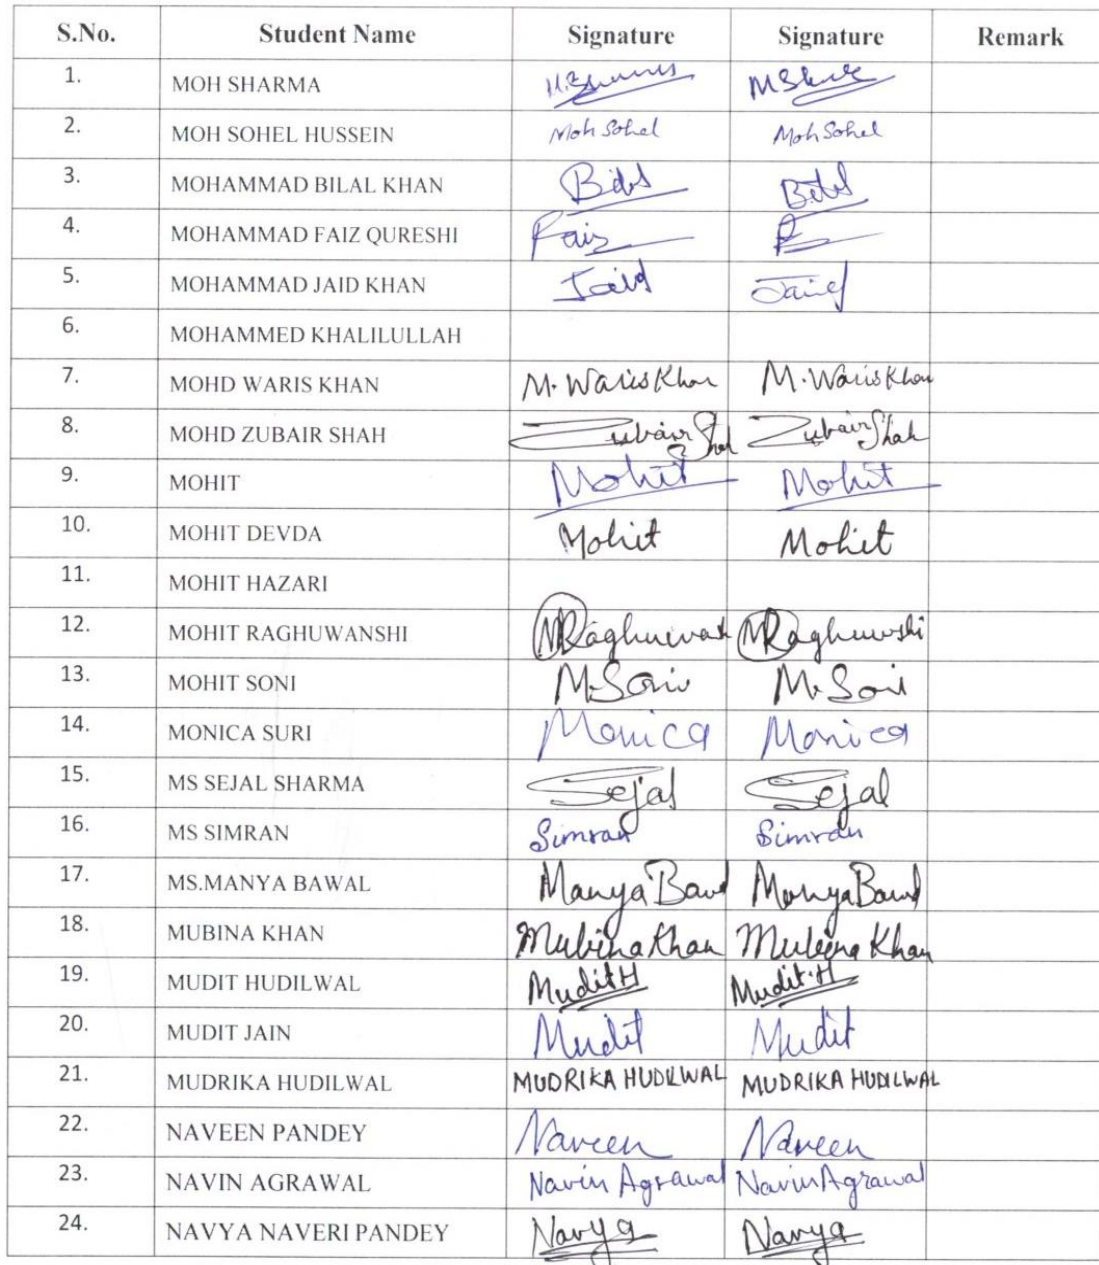 S.No. Student Name Signature Signature Remark
1. MOH SHARMA
2. MOH SOHEL HUSSEIN Moh Sohel Moh Sohel
3. MOHAMMAD BILAL KHAN
4. MOHAMMAD FAIZ QURESHI Faiz
5. MOHAMMAD JAID KHAN Jaid Jaid
6. MOHAMMED KHALILULLAH
7. MOHD WARIS KHAN M. Waris Khan M. Waris Khan
8. MOHD ZUBAIR SHAH Zubair Shah Zubair Shah
9. MOHIT Mohit Mohit
10. MOHIT DEVDA Mohit Mohit
11. MOHIT HAZARI
12. MOHIT RAGHUWANSHI
13. MOHIT SONI M. Soni M. Soni
14. MONICA SURI Monica Monica
15. MS SEJAL SHARMA Sejal Sejal
16. MS SIMRAN Simran Simran
17. MS.MANYA BAWAL Manya Manya
18. MUBINA KHAN Mubina Khan Mubina Khan
19. MUDIT HUDILWAL Mudit H Mudit.H
20. MUDIT JAIN Mudit Mudit
21. MUDRIKA HUDILWAL MUDRIKA HUDILWAL MUDRIKA HUDILWAL
22. NAVEEN PANDEY Naveen Naveen
23. NAVIN AGRAWAL Navin Agrawal Navin Agrawal
24. NAVYA NAVERI PANDEY Navya Navya